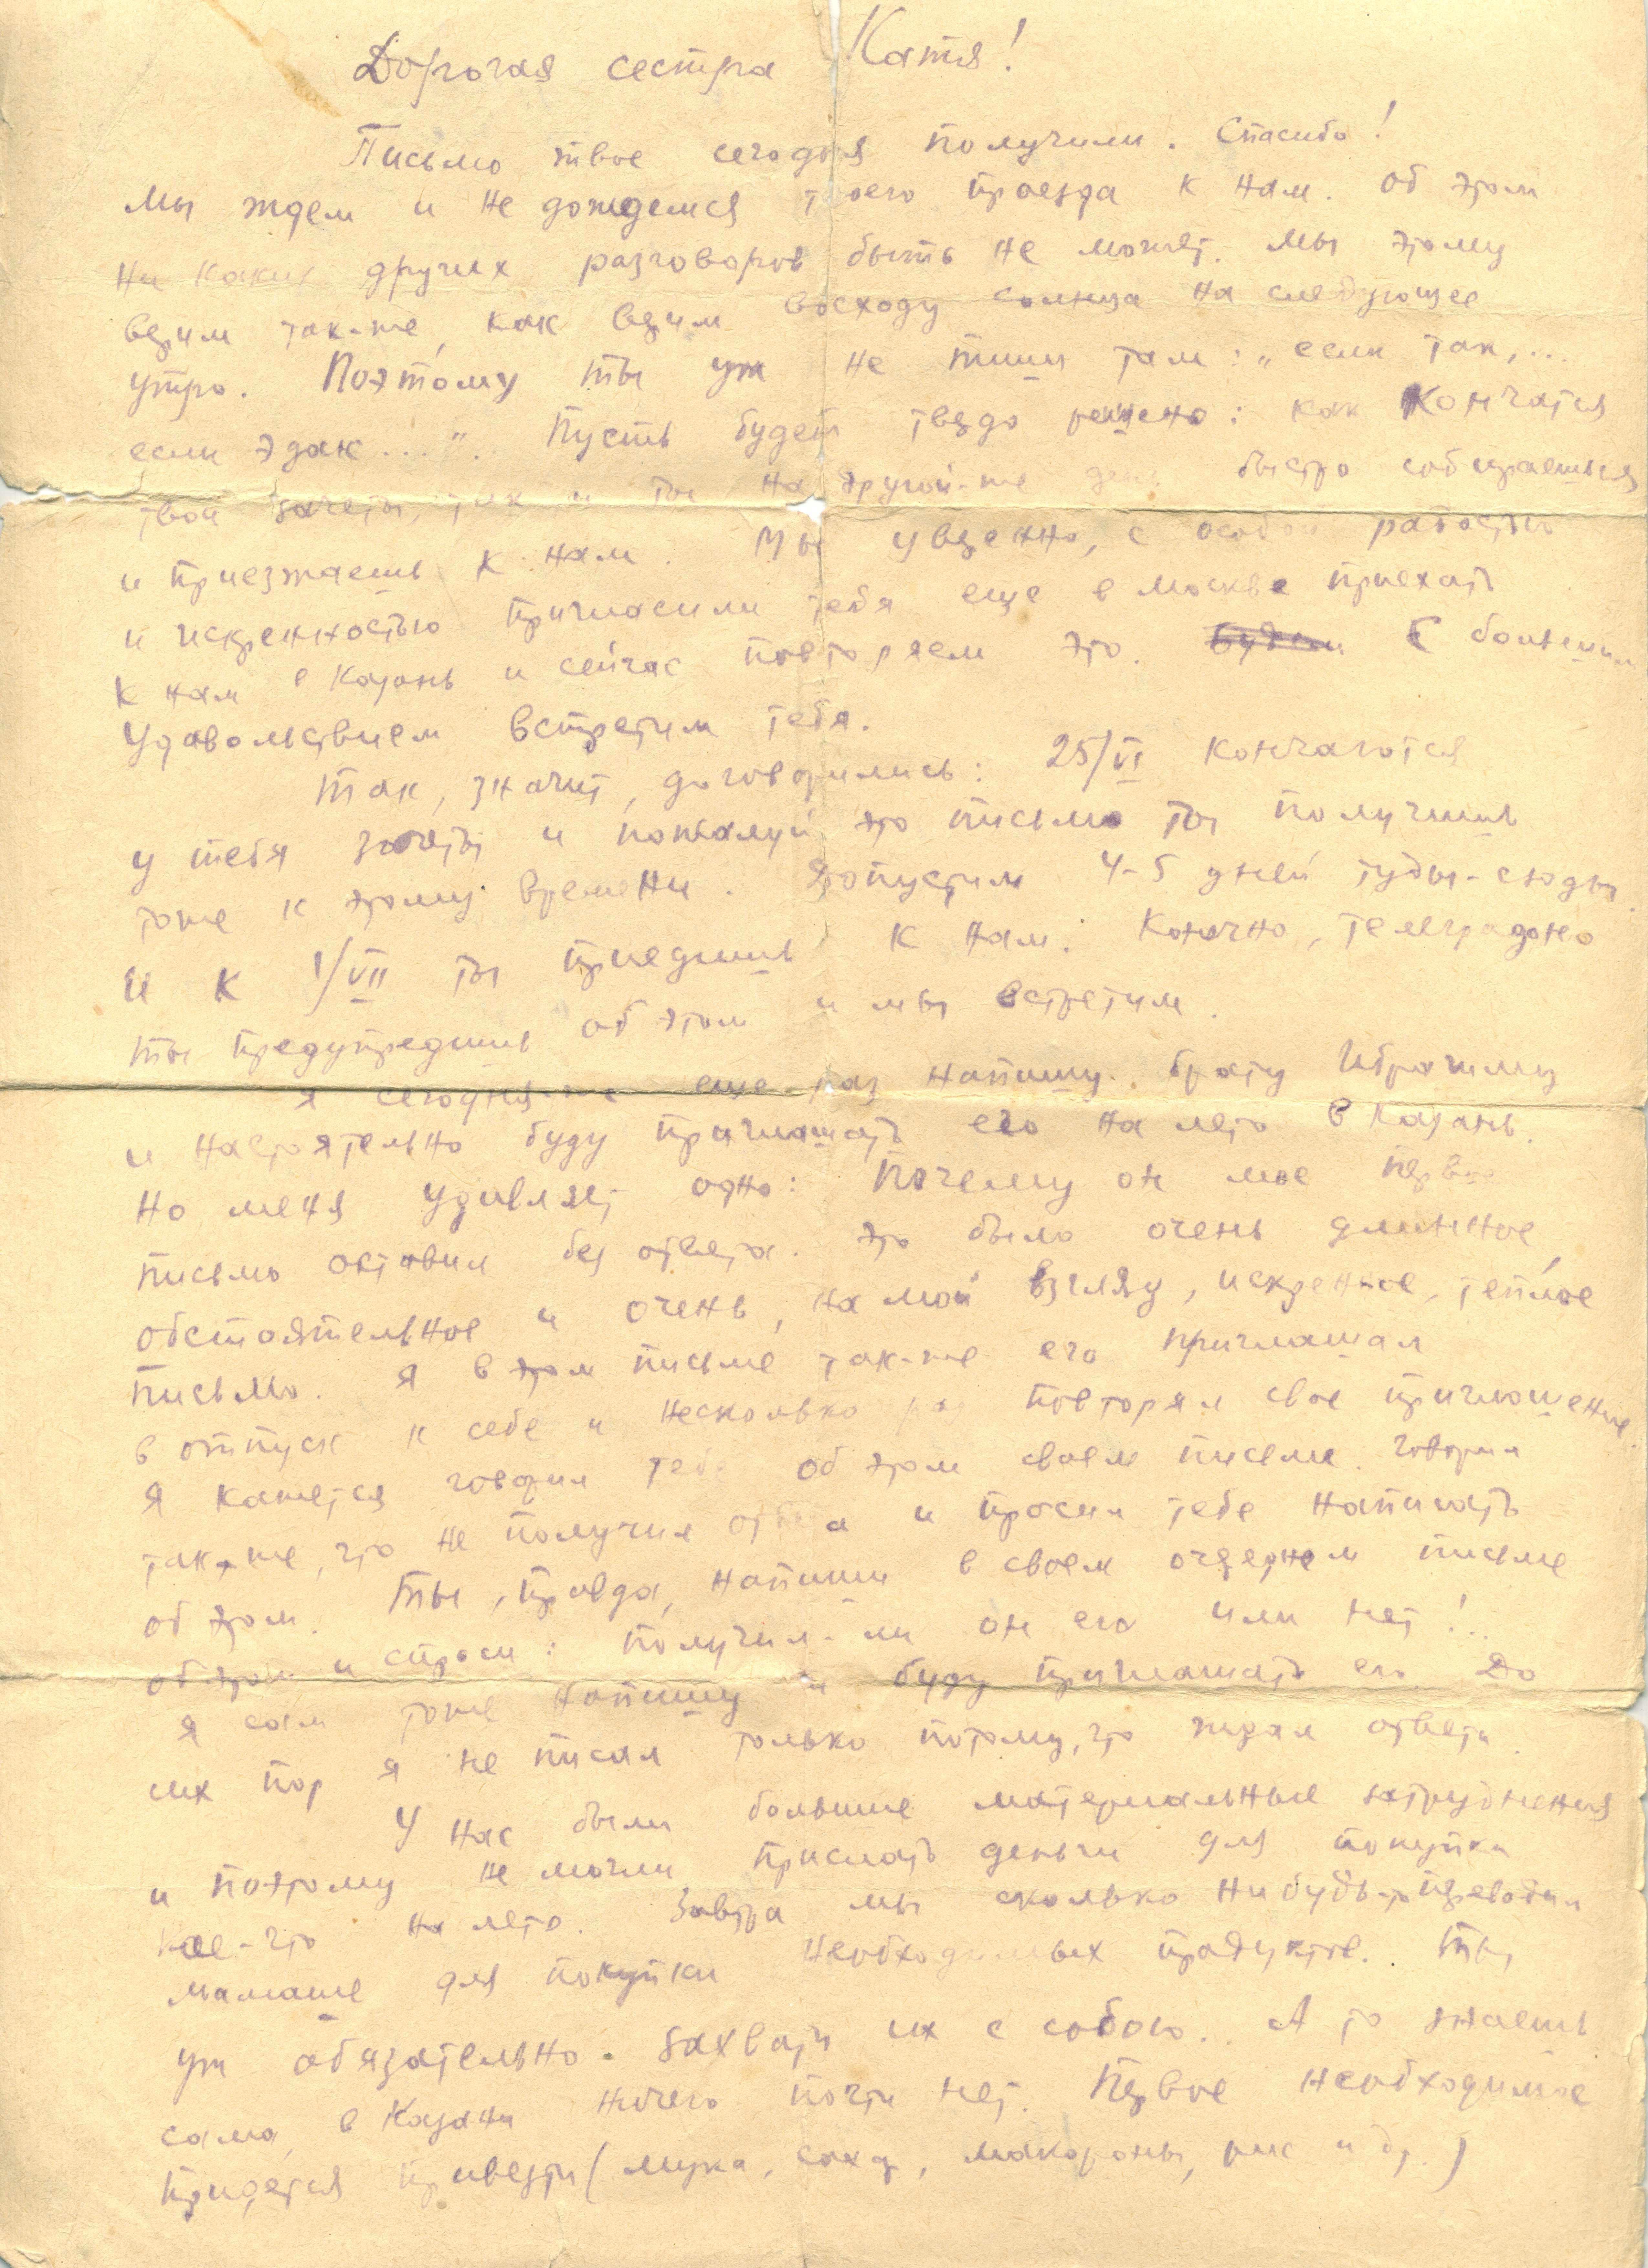 Дорогая сестра Катя!
Письмо твое сегодня получили. Спасибо!
Мы ждем и не дождемся твоего проезда к нам. Об этом
ни каких других разговоров быть не может. Мы этому
верим так-же, как верим восходу солнца на следующее
утро. Поэтому ты уж не пиши там: „если так,...
если эдак...". Пусть будет твердо решено: как кончатся
твои зачеты, так и ты на другой-же день быстро собираешься
и приезжаешь к нам. Мы уверенно, с особой радостью
и искренностью пригласили тебя еще в Москве приехать
к нам в Казань и сейчас повторяем это. Будем С большим
удовольствием встретим тебя.
Так, значит, договорились: 25/VI кончаются
у тебя зачеты и пожалуй это письмо ты получишь
тоже к этому времени. Допустим 4-5 дней туды-сюды.
И к 1/VII ты приедишь к нам. Конечно, телеграфно
ты предупредишь об этом и мы встретим.
Я сегодня-же еще раз напишу брату Ибрагиму
и настоятельно буду приглашать его на лето в Казань.
Но меня удивляет одно: Почему он мое первое
письмо оставил без ответа. Это было очень длинное,
обстоятельное и очень, на мой взгляд, искренное, теплое
письмо. Я в этом письме так-же его приглашал
в отпуск к себе и несколько раз повторял свое приглашение.
Я кажется говорил тебе об этом своем письме. Говорил
так-же, что не получил ответа и просил тебе написать
об этом. Ты, правда, напиши в своем очередном письме
об этом и спроси: получил-ли он его или нет!..
Я сам тоже напишу и буду приглашать его. До
сих пор я не писал только потому, что ждал ответа.
У нас были большие материальные затруднения
и поэтому не могли прислать деньги для покупки
кое-что на лето. Завтра мы сколько нибудь-то переводим
мамаше для покупки необходимых продуктов. Ты,
уж обязательно. захвати их с собою. А то знаешь
сама, в Казани ничего почти нет. Первое необходимое
придется привезти (мука, сахар, макароны, рис и др.)